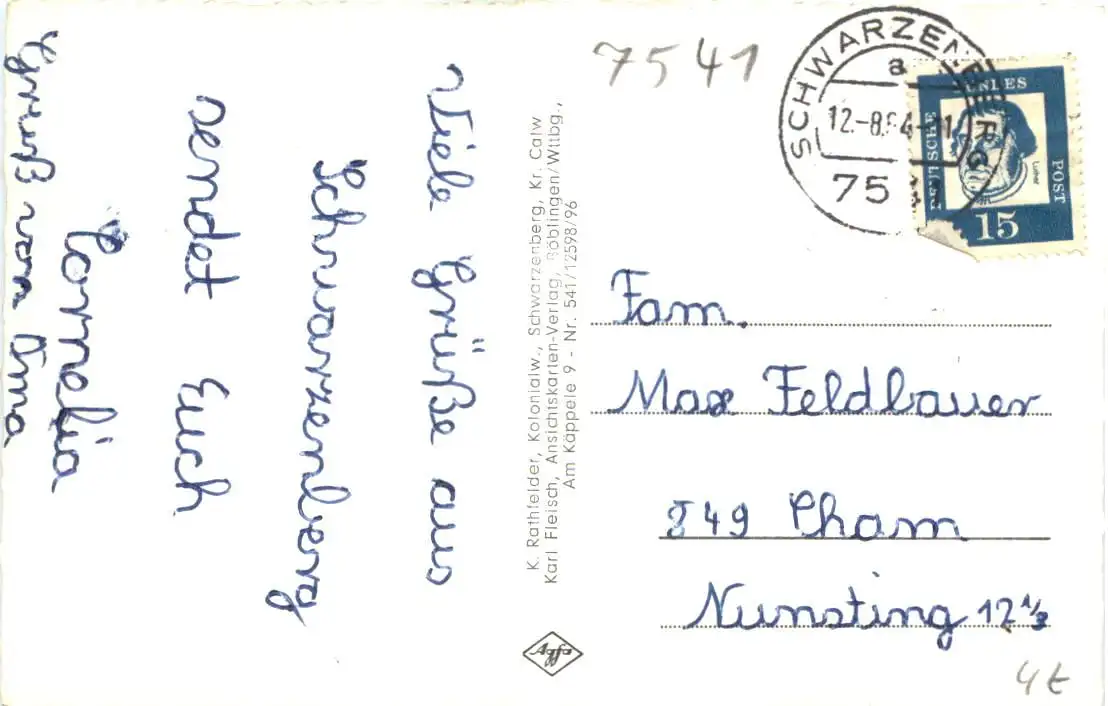 Viele Grüße aus
Schwarzenberg
sendet Euch
Cornelia
Gruß von Oma
K. Rathfelder, Kolonialw., Schwarzenberg, Kr. Calw
Karl Fleisch, Ansichtskarten-Verlag, Böblingen/Wttbg.,
Am Käppele 9 - Nr. 541/12598/96
Agfa
7541
SCHWARZENBERG
a
12.-8.64-11
75
DEUTSCHE
BUNDES
POST
Luther
15
Fam.
Max Feldbauer
849 Cham
Nunsting 12 1/2
4t